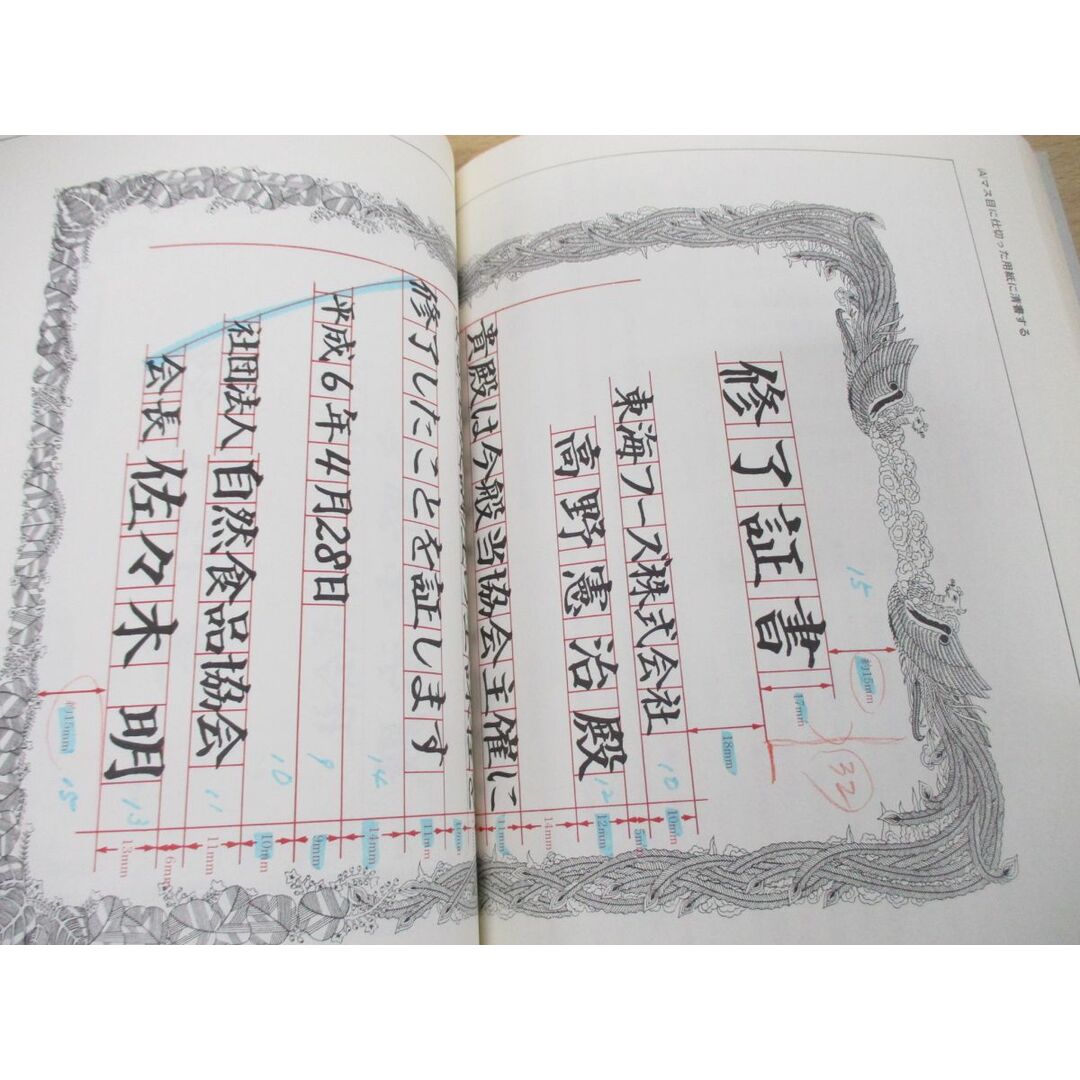 (A)マス目に仕切った用紙に清書する
修了証書
東海フーズ株式会社
高野憲治殿
貴殿は今般当協会主催に
修了したことを証します
平成6年4月28日
社団法人 自然食品協会
会長 佐々木 明
15
約15mm
17mm
32
18mm
10
10mm
5mm
12
12mm
14mm
11mm
11mm
14
14mm
9
9mm
10
10mm
11
11mm
6mm
13
13mm
約15mm
15